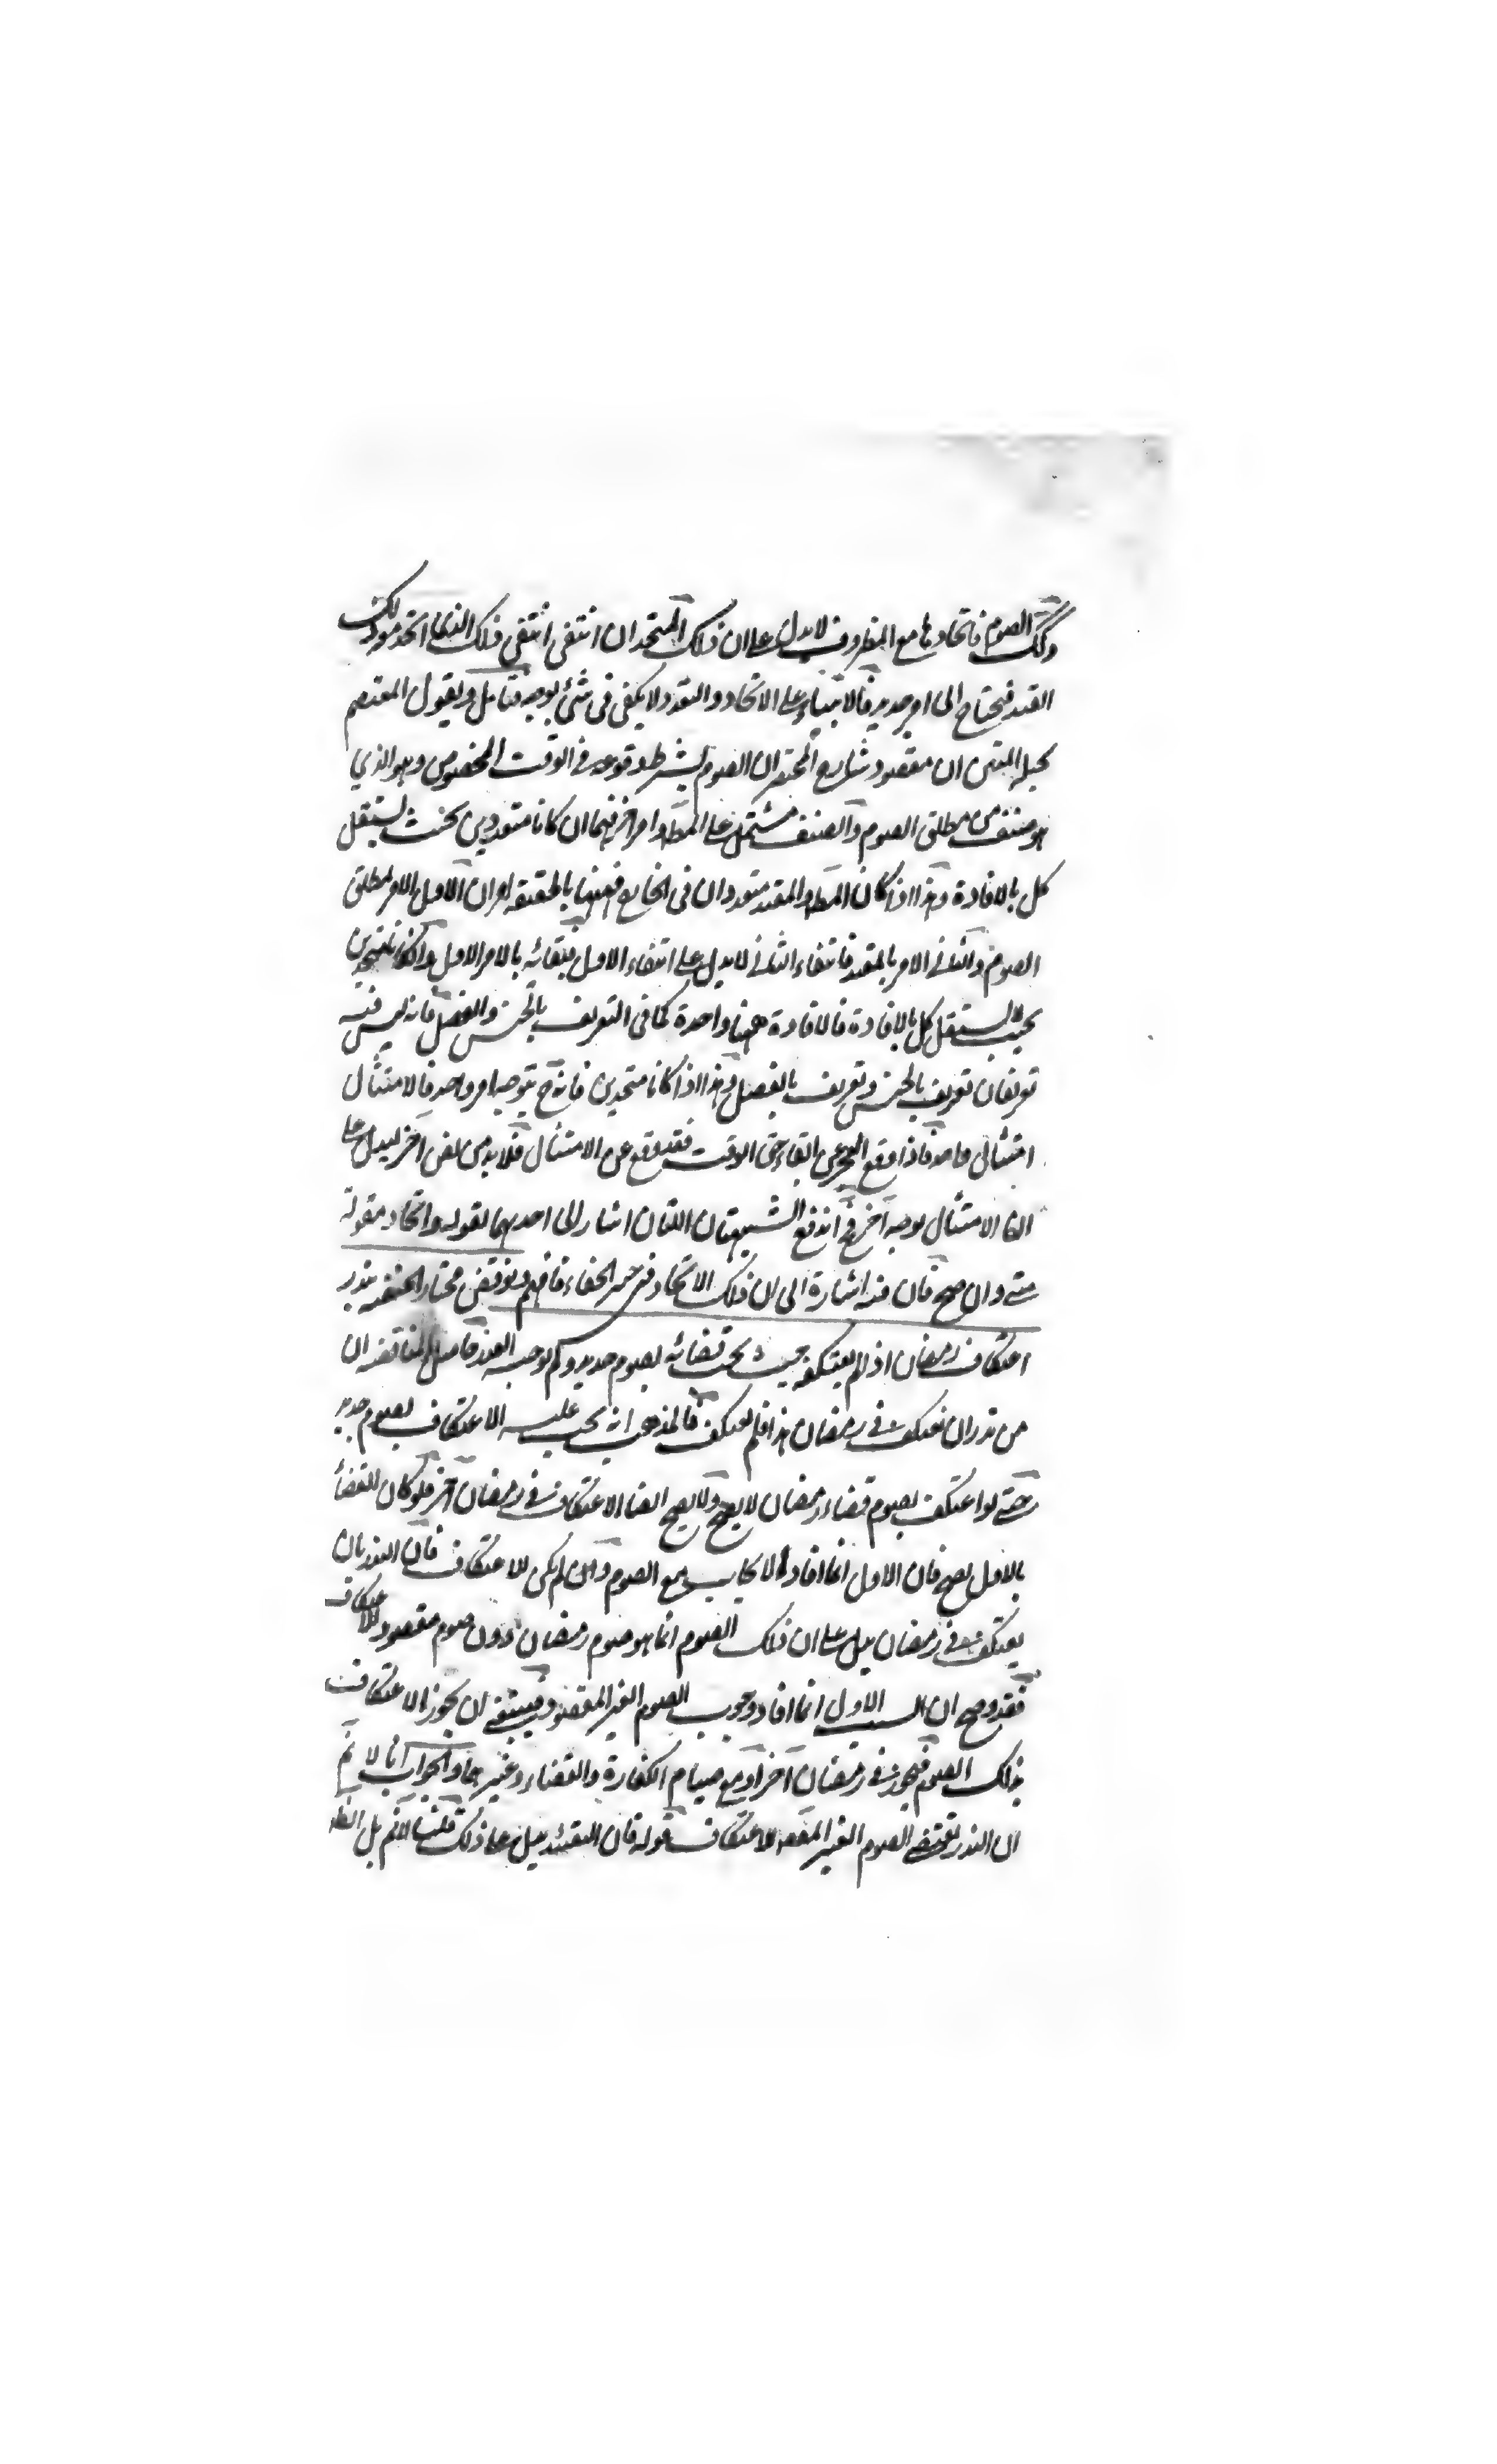 وكك الصوم فاتحادها مع الظروف لا يدل على ان ذلك المتحد ان انتفى انتفى ذلك الذى اتحد هو ذلك
القيد فيحتاج الى امر جديد فالابتناء على الاتحاد والتعدد لا يكفى فى شئ بوجه فتامل ويقول المعتصم
بحبله المتين ان مقصود شارح المختصر ان الصوم بشرط وقوعه فى الوقت المخصوص وهو الذي
هو صنف من مطلق الصوم والصنف مشتمل على المط وامر اخر فهما ان كانا متعددين بحيث يستقل
كل بالافادة وهذا اذا كان المط والمقيد متعددان فى الخارج فههنا بالحقيقة امران الاول الامر بمطلق
الصوم والثانى الامر بالمقيد فانتفاء الثانى لا يدل على انتفاء الاول فبقائه بالامر الاول وان كانا متحدين
بحيث لا يستقل كل بالافادة فالافادة ههنا واحدة كما فى التعريف بالجنس والفصل فانه ليس فيه
تعريفان تعريف بالجنس وتعريف بالفصل وهذا اذا كانا متحدين فانه ح يتوجه امر واحد فالامتثال
امتثال واحد فاذا وقع العجز عن ابقاء حق الوقت فقد وقع عن الامتثال فلا بد من نص اخر ليدل على
ان الامتثال بوجه اخر وح اندفع الشبهتان اللتان اشار الى احدهما بقوله واتحاد مقولة
متى وان صح فان فيه اشارة الى ان ذلك الاتحاد فى حيز الخفاء فافهم ونوقض مختار الحنفية بنذر
اعتكاف رمضان اذا لم يعتكفه حيث يجب قضائه بصوم جديد ولم يوجبه النذر حاصل المناقضة ان
من نذر ان يعتكف فى رمضان هذا فلم يعتكف فالمذهب انه يجب عليه الاعتكاف بصوم جديد
حتى لو اعتكف بصوم قضاء رمضان لا يصح ولا يصح ايضا الاعتكاف فى رمضان اخر فلو كان القضاء
بالاول لصح فان الاول انما افاد الايجاب مع الصوم وان لم يكن للاعتكاف فان النذر بان
يعتكف فى رمضان يدل على ان ذلك الصوم انما هو صوم رمضان دون صوم مقصود للاعتكاف
فقد وضح ان السبب الاول انما افاد وجوب الصوم الغير المقصود فينبغى ان يجوز الاعتكاف
بذلك الصوم فيجوز فى رمضان اخر او مع صيام الكفارة والقضاء وغيرهما والجواب انا لا نم
ان النذر يقتضى الصوم الغير المقصود للاعتكاف قوله فان التقييد يدل على ذلك قلنا لا نم بل الظ